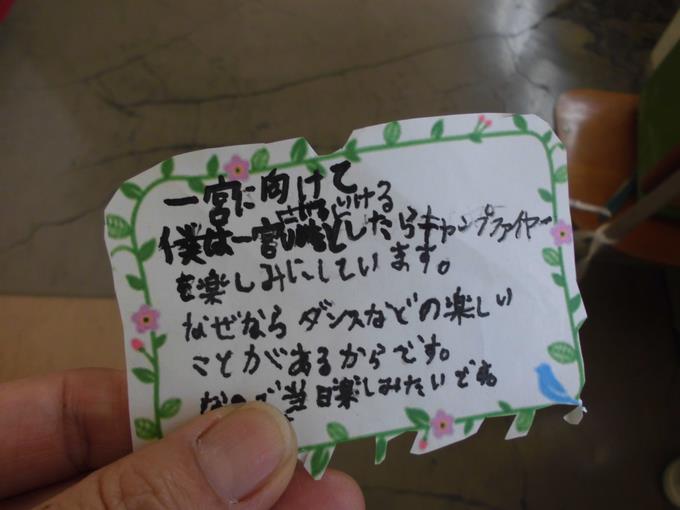 一宮に向けて
僕は一宮にしたらキャンプファイヤー
を楽しみにしています。
なぜならダンスなどの楽しい
ことがあるからです。
なので当日楽しみたいです